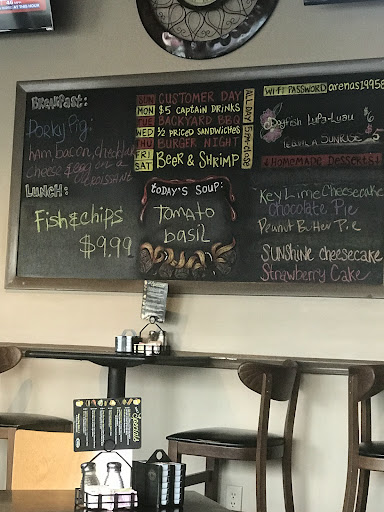 Breakfast:
Porky Pig:
ham, bacon, cheddar
cheese & egg on a
croissant
Lunch:
Fish & chips
$9.99
SUN CUSTOMER DAY
MON $5 CAPTAIN DRINKS
TUE BACKYARD BBQ
WED ½ PRICED SANDWICHES
THU BURGER NIGHT
FRI
SAT BEER & SHRIMP
ALL DAY 5PM-close
today's soup:
tomato
basil
WI-FI PASSWORD: arenas1995
Dogfish Lupu-Luau $6
TEQUILA SUNRISE $5
HOMEMADE DESSERTS!
Key Lime Cheesecake
Chocolate Pie
Peanut Butter Pie
SUNSHINE cheesecake
Strawberry Cake
Specials